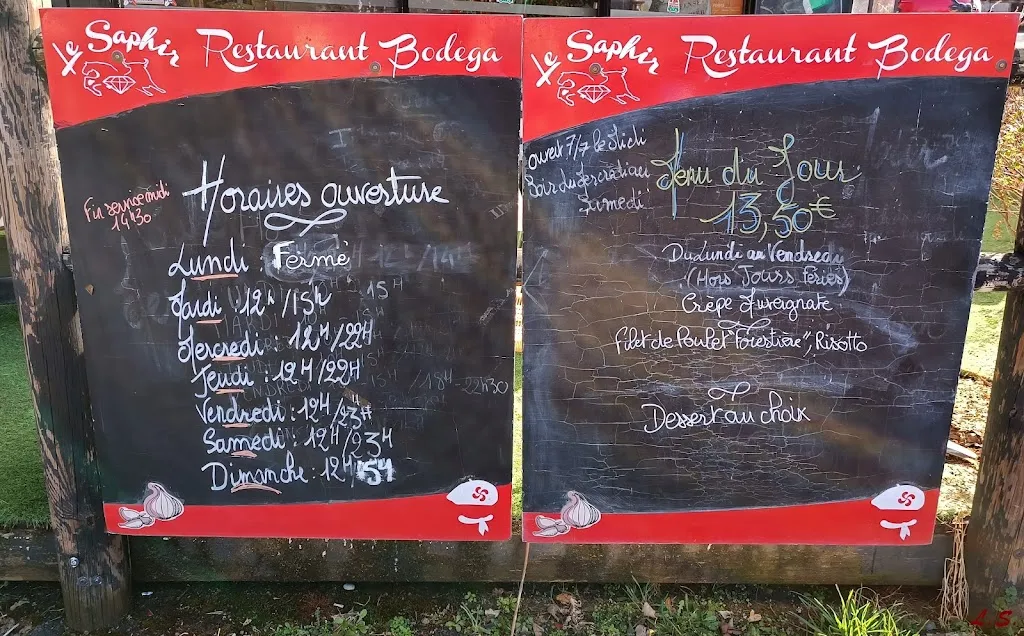 Le Saphir Restaurant Bodega
Fin service midi
14h30
Horaires ouverture
Lundi : Fermé
Mardi : 12h/15h
Mercredi : 12H/22H
Jeudi : 12H/22H
Vendredi : 12H/23H
Samedi : 12H/23H
Dimanche : 12H/15H
Le Saphir Restaurant Bodega
ouvert 7/7 le Midi
Soir du
Samedi
Menu du Jour
13,50€
Du Lundi au Vendredi
(Hors Jours Fériés)
Crêpe Auvergnate
Filet de Poulet "Forestière", Risotto
Dessert au choix
A.S